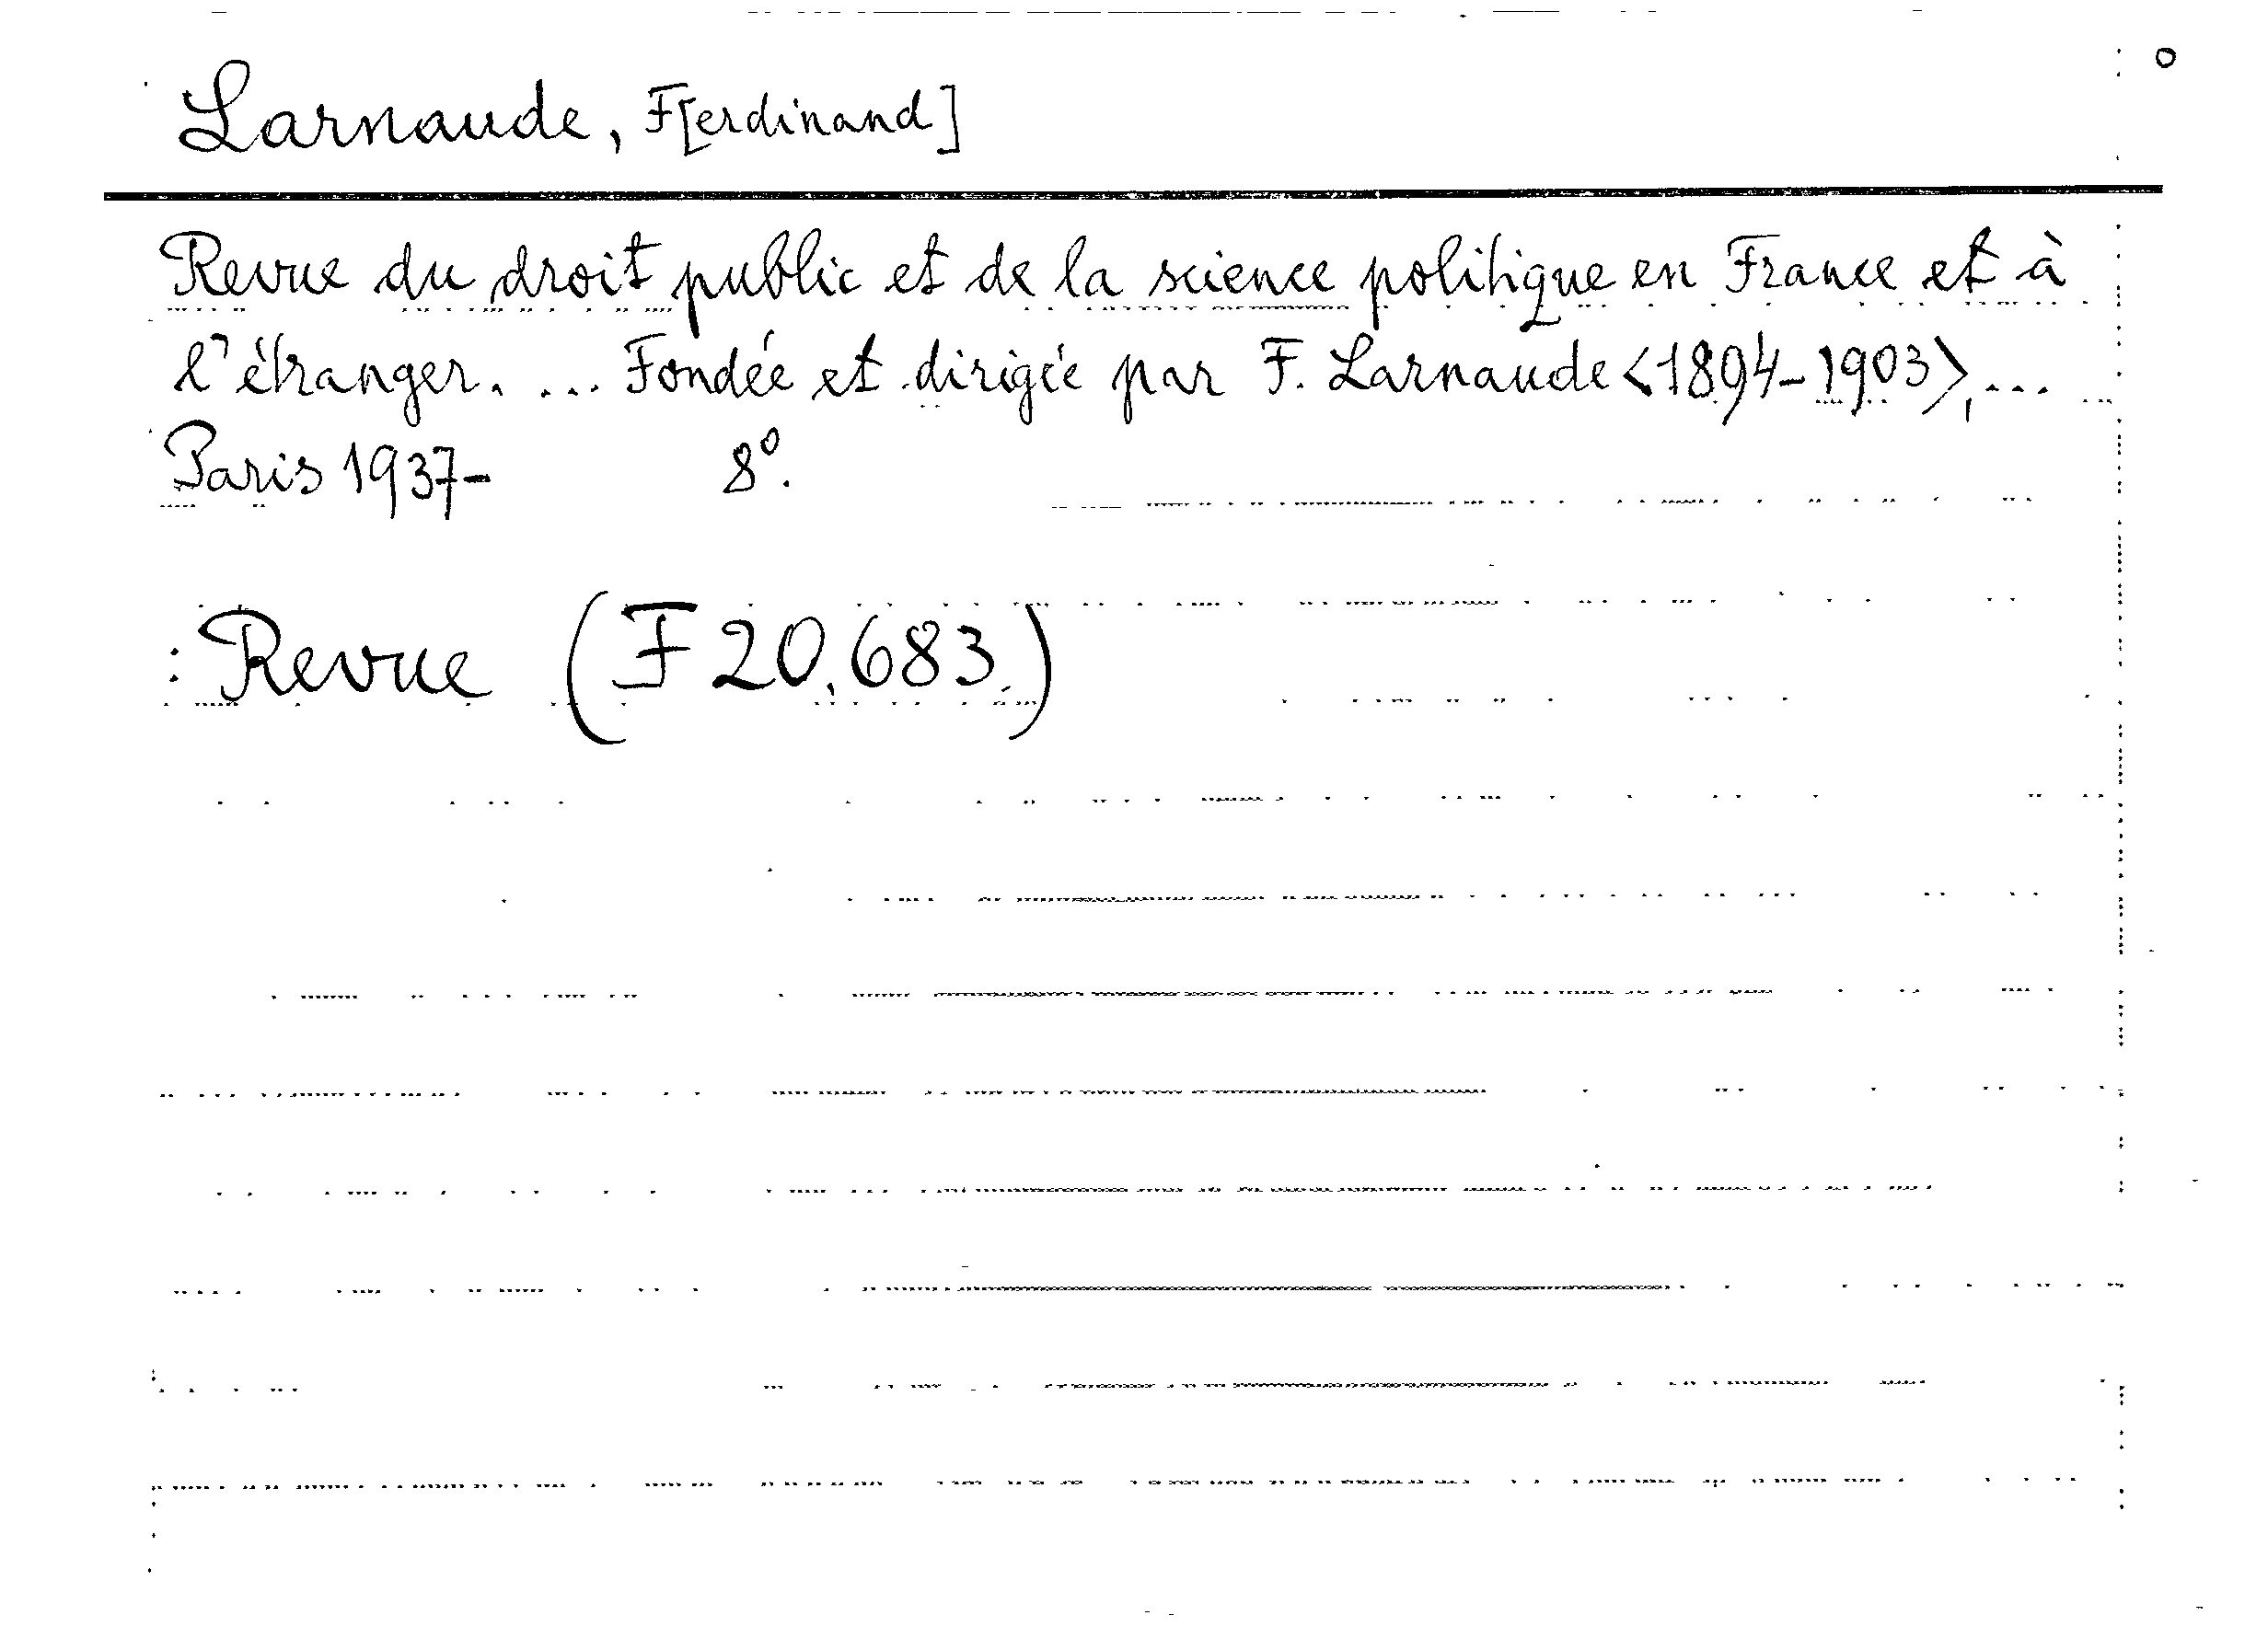 Larnaude, F[erdinand]
Revue du droit public et de la science politique en France et à
l'étranger. ... Fondée et dirigée par F. Larnaude <1894-1903>, ...
Paris 1937- 8°.
: Revue (F 20.683.)